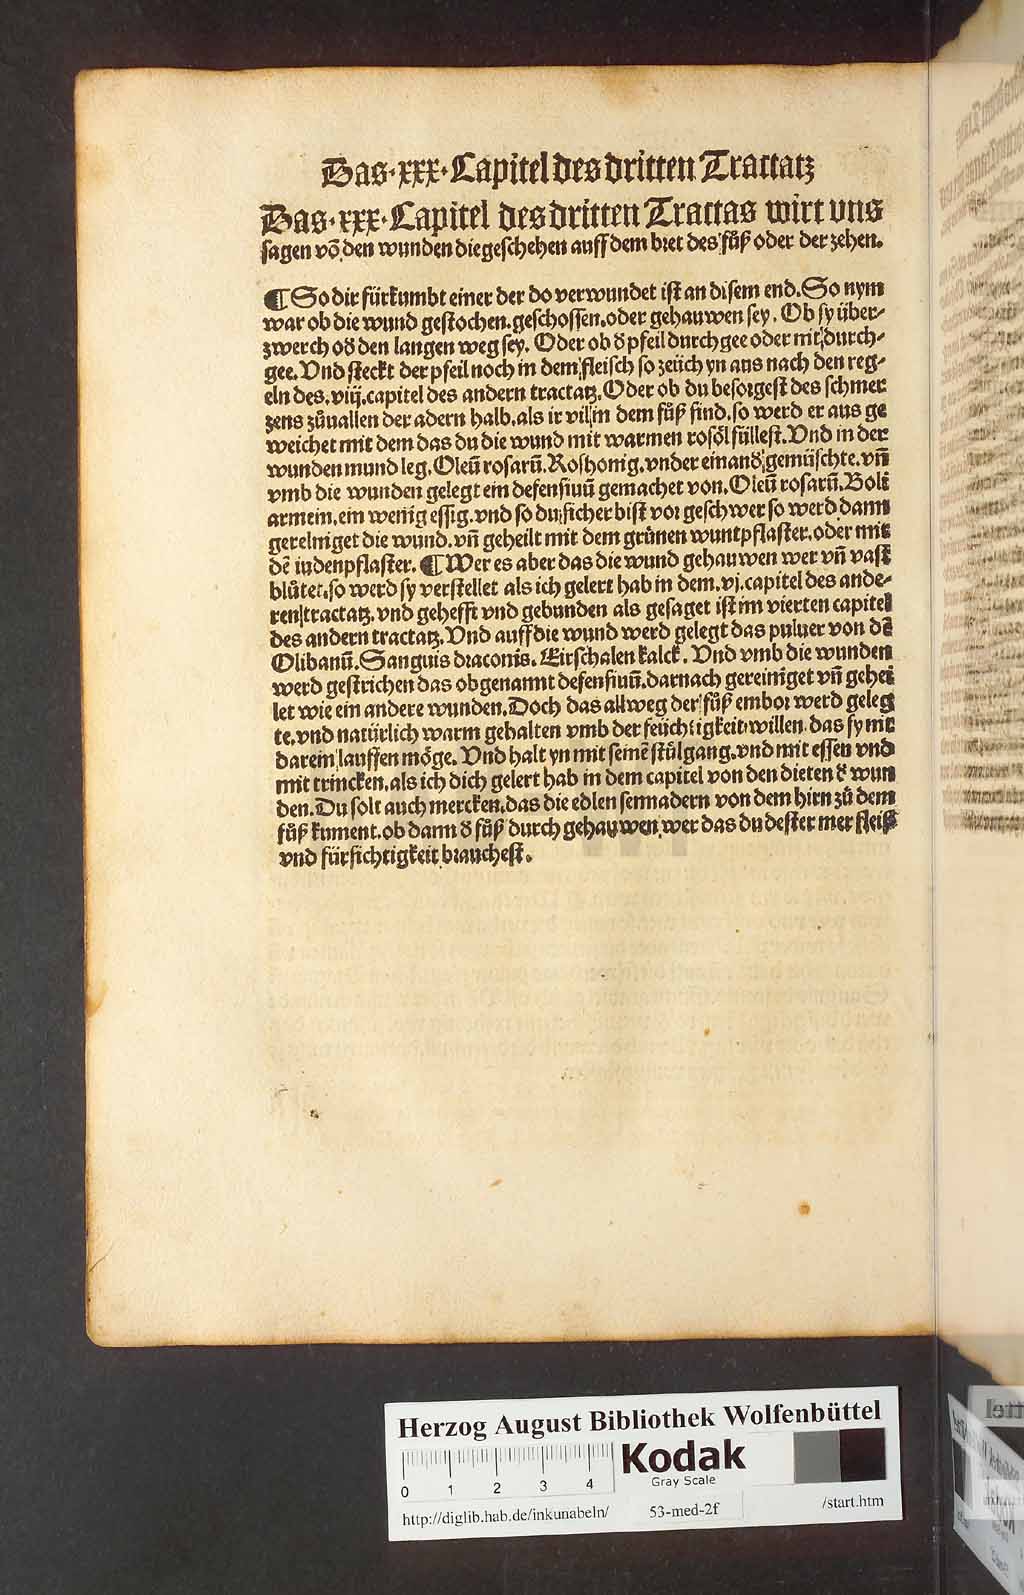 Das·xxx·Capitel des dritten Tractatz
Das·xxx·Capitel des dritten Tractas wirt vns
sagen võ den wunden die geschehen auff dem bret des fůß oder der zehen.
¶ So dir fürkumbt einer der do verwundet ist an disem end. So nym
war ob die wund gestochen. geschossen. oder gehauwen sey. Ob sy über-
zwerch oď den langen weg sey. Oder ob ď pfeil durch gee oder nit durch-
gee. Vnd steckt der pfeil noch in dem fleisch so zeüch yn aus nach den reg-
eln des. viij. capitel des andern tractatz. Oder ob du besorgest des schmer
zens zůuallen der adern halb. als ir vil in dem fůß sind. so werd er aus ge
weichet mit dem das du die wund mit warmen rosöl füllest. Vnd in der
wunden mund leg. Oleū rosarū. Roshonig. vnder einanď gemüschte. vñ
vmb die wunden gelegt ein defensiuū gemachet von. Oleū rosarū. Boli
armein. ein wenig essig. vnd so du sicher bist vor geschwer so werd dann
gereiniget die wund. vñ geheilt mit dem grünen wuntpflaster. oder mit
dē iudenpflaster. ¶ Wer es aber das die wund gehauwen wer vñ vast
blůtet. so werd sy verstellet als ich gelert hab in dem. vj. capitel des ande-
ren tractatz. vnd gehefft vnd gebunden als gesaget ist im vierten capitel
des andern tractatz. Vnd auff die wund werd gelegt das puluer von dē
Olibanū. Sanguis draconis. Eirschalen kalck. Vnd vmb die wunden
werd gestrichen das obgenannt defensiuū. darnach gereiniget vñ gehei
let wie ein andere wunden. Doch das allweg der fůß embor werd geleg
te. vnd natürlich warm gehalten vmb der feüchtigkeit willen. das sy nit
darein lauffen möge. Vnd halt yn mit seinē stůlgang. vnd mit essen vnd
mit trincken. als ich dich gelert hab in dem capitel von den dieten ď wun
den. Du solt auch mercken. das die edlen sennadern von dem hirn zů dem
fůß kument. ob dann ď fůß durch gehauwen wer das du dester mer fleiß
vnd fürsichtigkeit brauchest.
Herzog August Bibliothek Wolfenbüttel
Kodak
Gray Scale
0 1 2 3 4
http://diglib.hab.de/inkunabeln/ 53-med-2f /start.htm